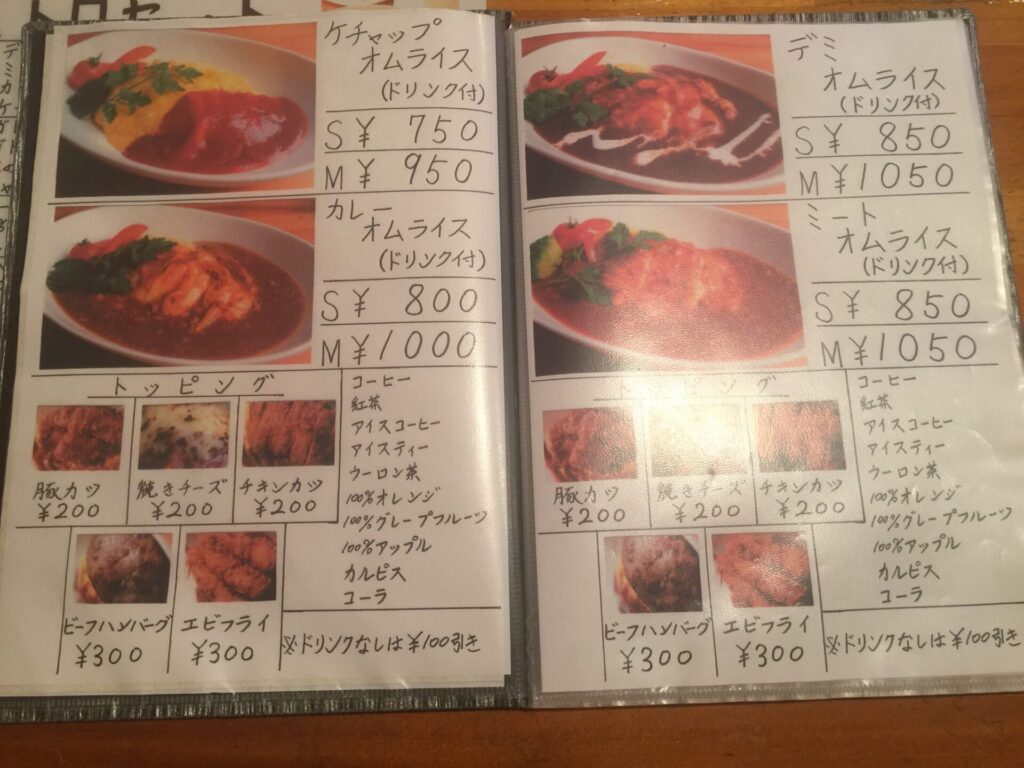 ケチャップ
オムライス
(ドリンク付)
S ¥ 750
M ¥ 950
カレー
オムライス
(ドリンク付)
S ¥ 800
M ¥1000
トッピング
豚カツ
¥200
焼きチーズ
¥200
チキンカツ
¥200
ビーフハンバーグ
¥300
エビフライ
¥300
コーヒー
紅茶
アイスコーヒー
アイスティー
ウーロン茶
100%オレンジ
100%グレープフルーツ
100%アップル
カルピス
コーラ
※ドリンクなしは¥100引き
デミ
オムライス
(ドリンク付)
S ¥ 850
M ¥1050
ミート
オムライス
(ドリンク付)
S ¥ 850
M ¥1050
トッピング
豚カツ
¥200
焼きチーズ
¥200
チキンカツ
¥200
ビーフハンバーグ
¥300
エビフライ
¥300
コーヒー
紅茶
アイスコーヒー
アイスティー
ウーロン茶
100%オレンジ
100%グレープフルーツ
100%アップル
カルピス
コーラ
※ドリンクなしは¥100引き